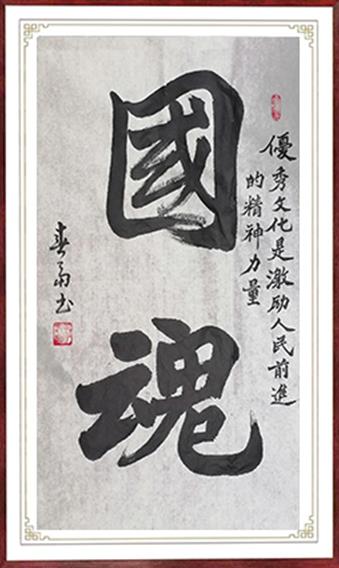 優秀文化是激励人民前進
的精神力量
國魂